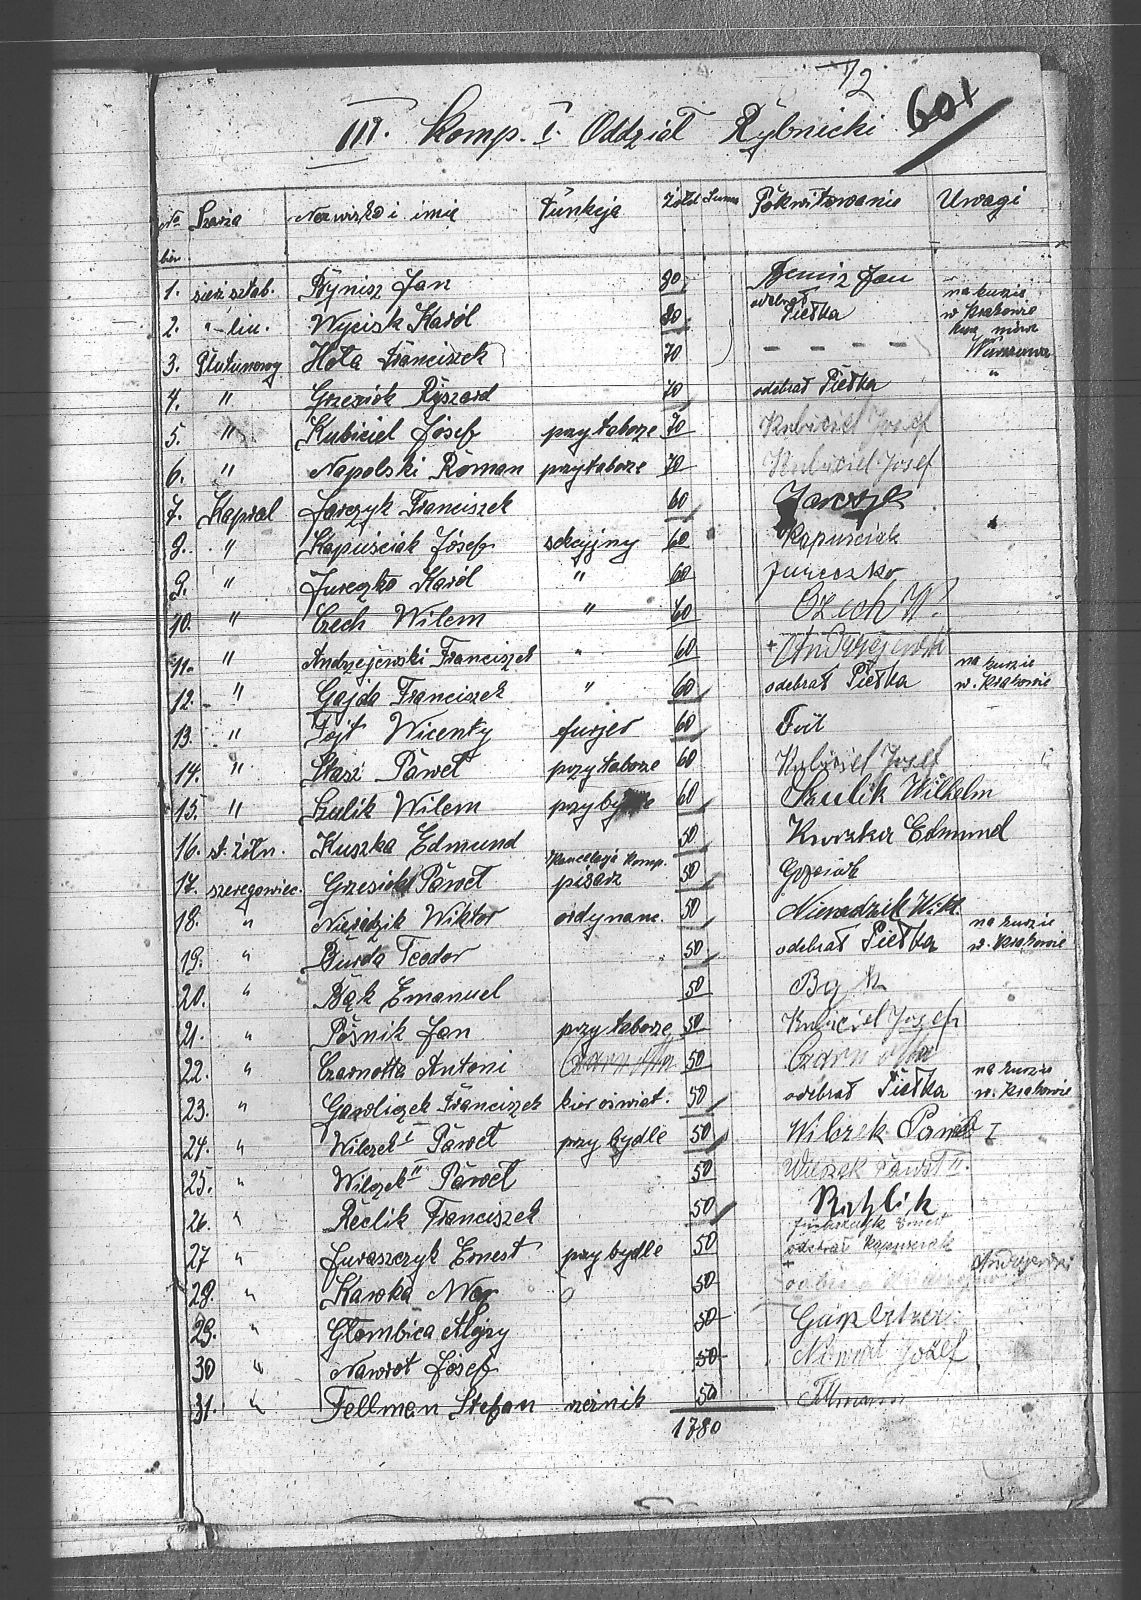 72
601
III. Komp. I. Oddział Rybnicki
No bież. Szarża Nazwisko i imię Funkcja Żołd Suma Pokwitowanie Uwagi
1. sierż. sztab. Bynisz Jan 80 Bynisz Jan na kursie
2. " lin. Wycisk Karól 80 odebrał Pietka w Krakowie
3. Plutunowy Hota Franciszek 70 Warszawa
4. " Grzesiok Ryszard 70 odebrał Pietka "
5. " Kubiciel Józef przy taborze 70 Kubiciel Josef
6. " Napolski Roman przy taborze 70 Kubiciel Josef
7. Kapral Jarczyk Franciszek 60
8. " Kapuściak Józef sekcyjny 60 Kapuściak
9. " Jureczko Karól " 60 Jureczko
10. " Czech Wilem " 60 Czech W.
11. " Andrzejewski Franciszek " 60 + Andrzejewski
12. " Gajda Franciszek " 60 odebrał Pietka na kursie w Krakowie
13. " Fojt Wicenty furjer 60 Foit
14. " Stasi Paweł przy taborze 60 Kubiciel Josef
15. " Szulik Wilem 60 Szulik Wilhelm
16. st. żółn. Kuszka Edmund 50 Kuszka Edmund
17. szeregowiec. Grzesiok Paweł kancelaja komp. pisarz 50 Grzesiok
18. " Nieradzik Wiktor ordynanc. 50 Nieradzik Wikt.
19. " Burda Teodor 50 odebrał Pietka na kursie w. Krakowie
20. " Bąk Emanuel 50 Bąk
21. " Pośnik Jan przy taborze 50 Kubiciel Jozef
22. " Czarnotta Antoni Czarnotta 50 Czarnotta
23. " Gawliczek Franciszek kier oświat. 50 odebrał Pietka na kursie w. Krakowie
24. " Wilczek I Paweł przy bydle 50 Wilczek Paweł I
25. " Wilczek II Paweł 50 Wilczek Paweł II.
26. " Reclik Franciszek 50
27 " Juraszczyk Ernest przy bydle 50 odebrał Kapuściak
28. " Kawka 50 Andrzejewski
29. " Głombica Alojzy 50
30 " Nawrot Józef 50 Nawrot Józef
31. " Fellman Stefan rzeźnik 50 Fellmann
1780